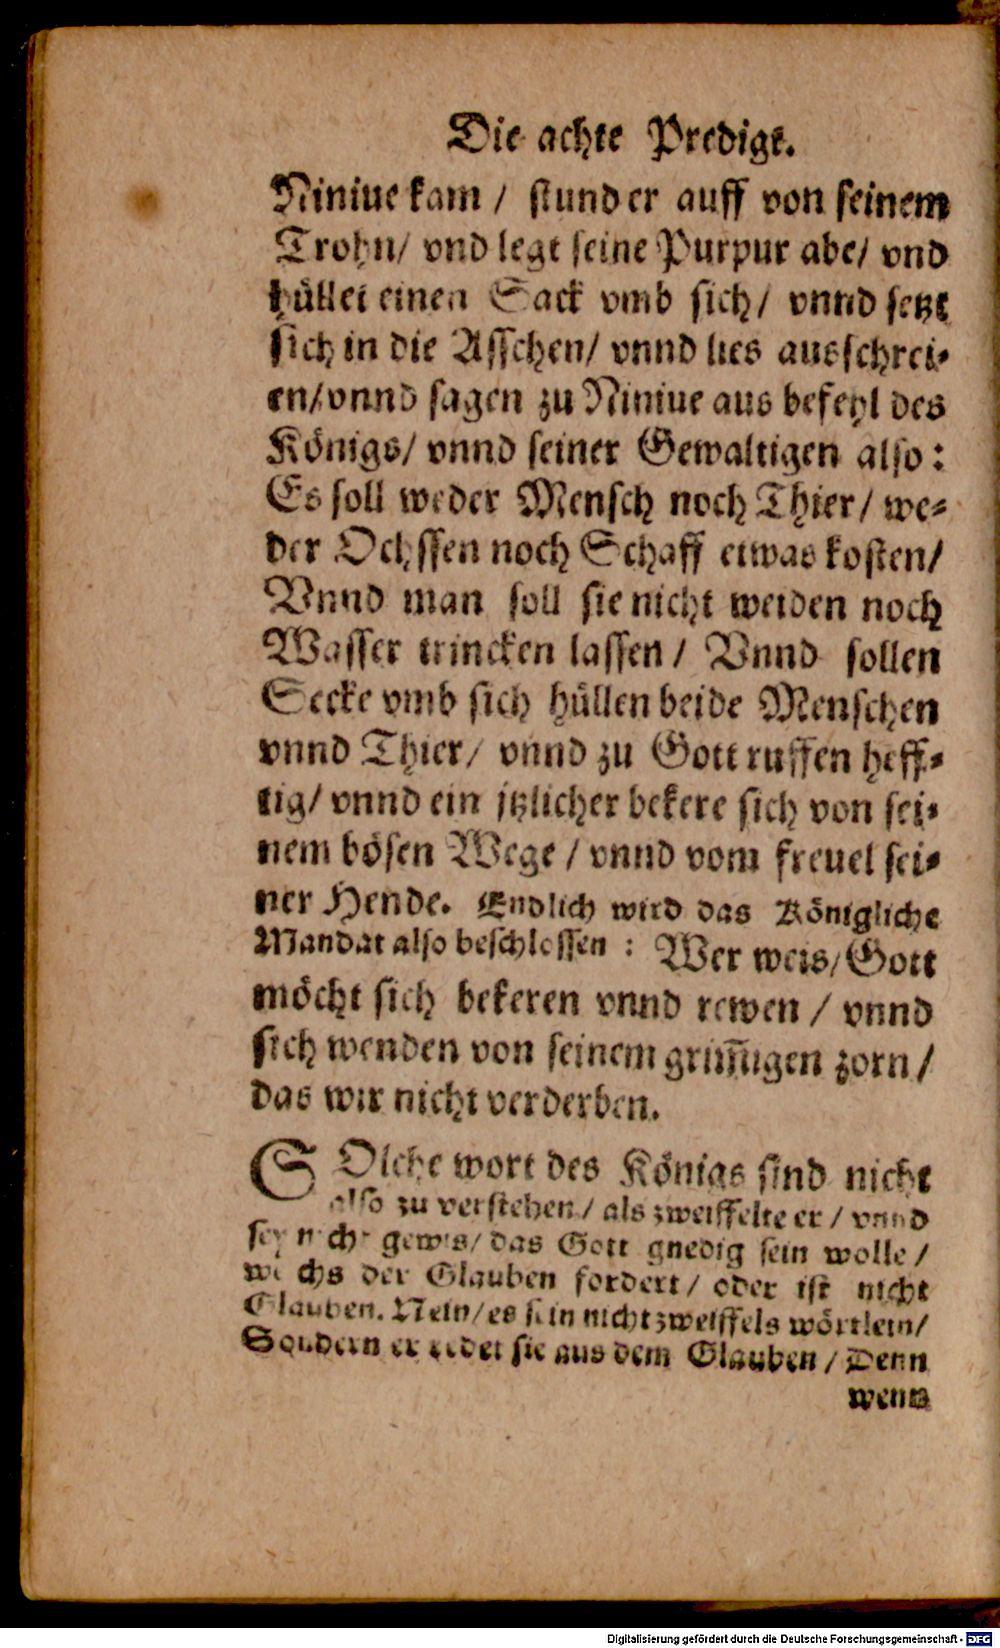 Die achte Predigt.
Niniue kam / stund er auff von seinem
Trohn/ vnd legt seine Purpur abe/ vnd
hüllet einen Sack vmb sich/ vnnd setzt
sich in die Asschen/ vnnd lies ausschrei-
en/vnnd sagen zu Niniue aus befehl des
Königs/ vnnd seiner Gewaltigen also:
Es soll weder Mensch noch Thier/ we-
der Ochssen noch Schaff etwas kosten/
Vnnd man soll sie nicht weiden noch
Wasser trincken lassen / Vnnd sollen
Secke vmb sich hüllen beide Menschen
vnnd Thier/ vnnd zu Gott ruffen heff-
tig/ vnnd ein jtzlicher bekere sich von sei-
nem bösen Wege / vnnd vom freuel sei-
ner Hende. Endlich wird das Königliche
Mandat also beschlossen : Wer weis/ Gott
möcht sich bekeren vnnd rewen / vnnd
sich wenden von seinem grim̅igen zorn /
das wir nicht verderben.
SOlche wort des Königs sind nicht
also zu verstehen / als zweiffelte er / vnnd
sey nicht gewis/ das Gott gnedig sein wolle /
welchs der Glauben fordert/ oder ist nicht
Glauben. Nein/ es sein nicht zweiffels wörtlein/
Sondern er redet sie aus dem Glauben / Denn
wenn
Digitalisierung gefördert durch die Deutsche Forschungsgemeinschaft - DFG